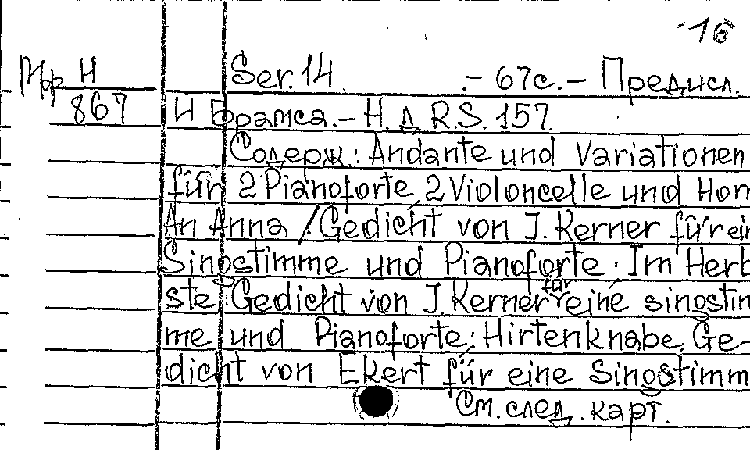 -16
Мф Н Ser. 14. .- 67с. - Предисл.
867 И Брамса. - Н.д R.S. 157.
Содерж.: Andante und Variationen
für 2 Pianoforte 2 Violoncelle und Horn
An Anna /Gedicht von J. Kerner für ein
Singstimme und Pianoforte. Im Herb
ste Gedicht von J. Kerner für eine singstim
me und Pianoforte; Hirtenknabe, Ge-
dicht von Ekert für eine Singstimm
См. след. карт.